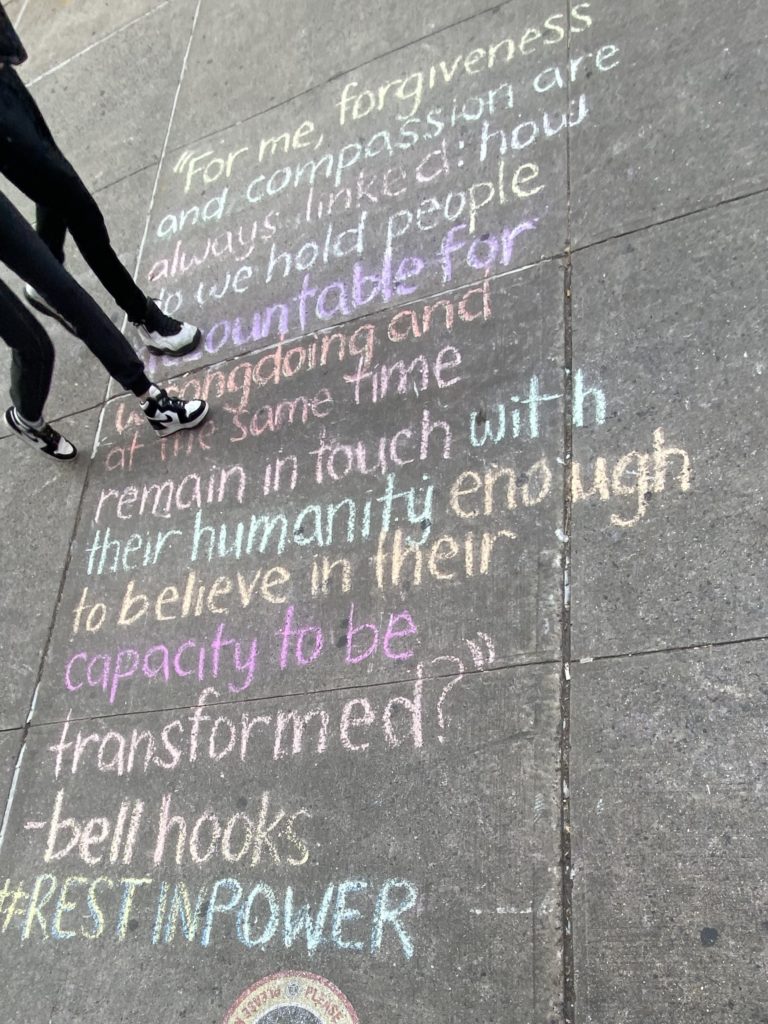 "For me, forgiveness
and compassion are
always linked: how
do we hold people
accountable for
wrongdoing and
at the same time
remain in touch with
their humanity enough
to believe in their
capacity to be
transformed?"
-bell hooks
#RESTINPOWER
PLEASE PLEASE